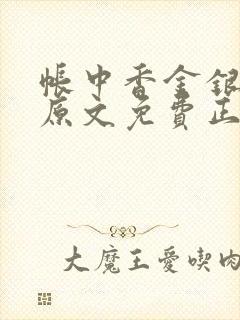 帳中香金銀
原文免費正
大魔王愛喫肉